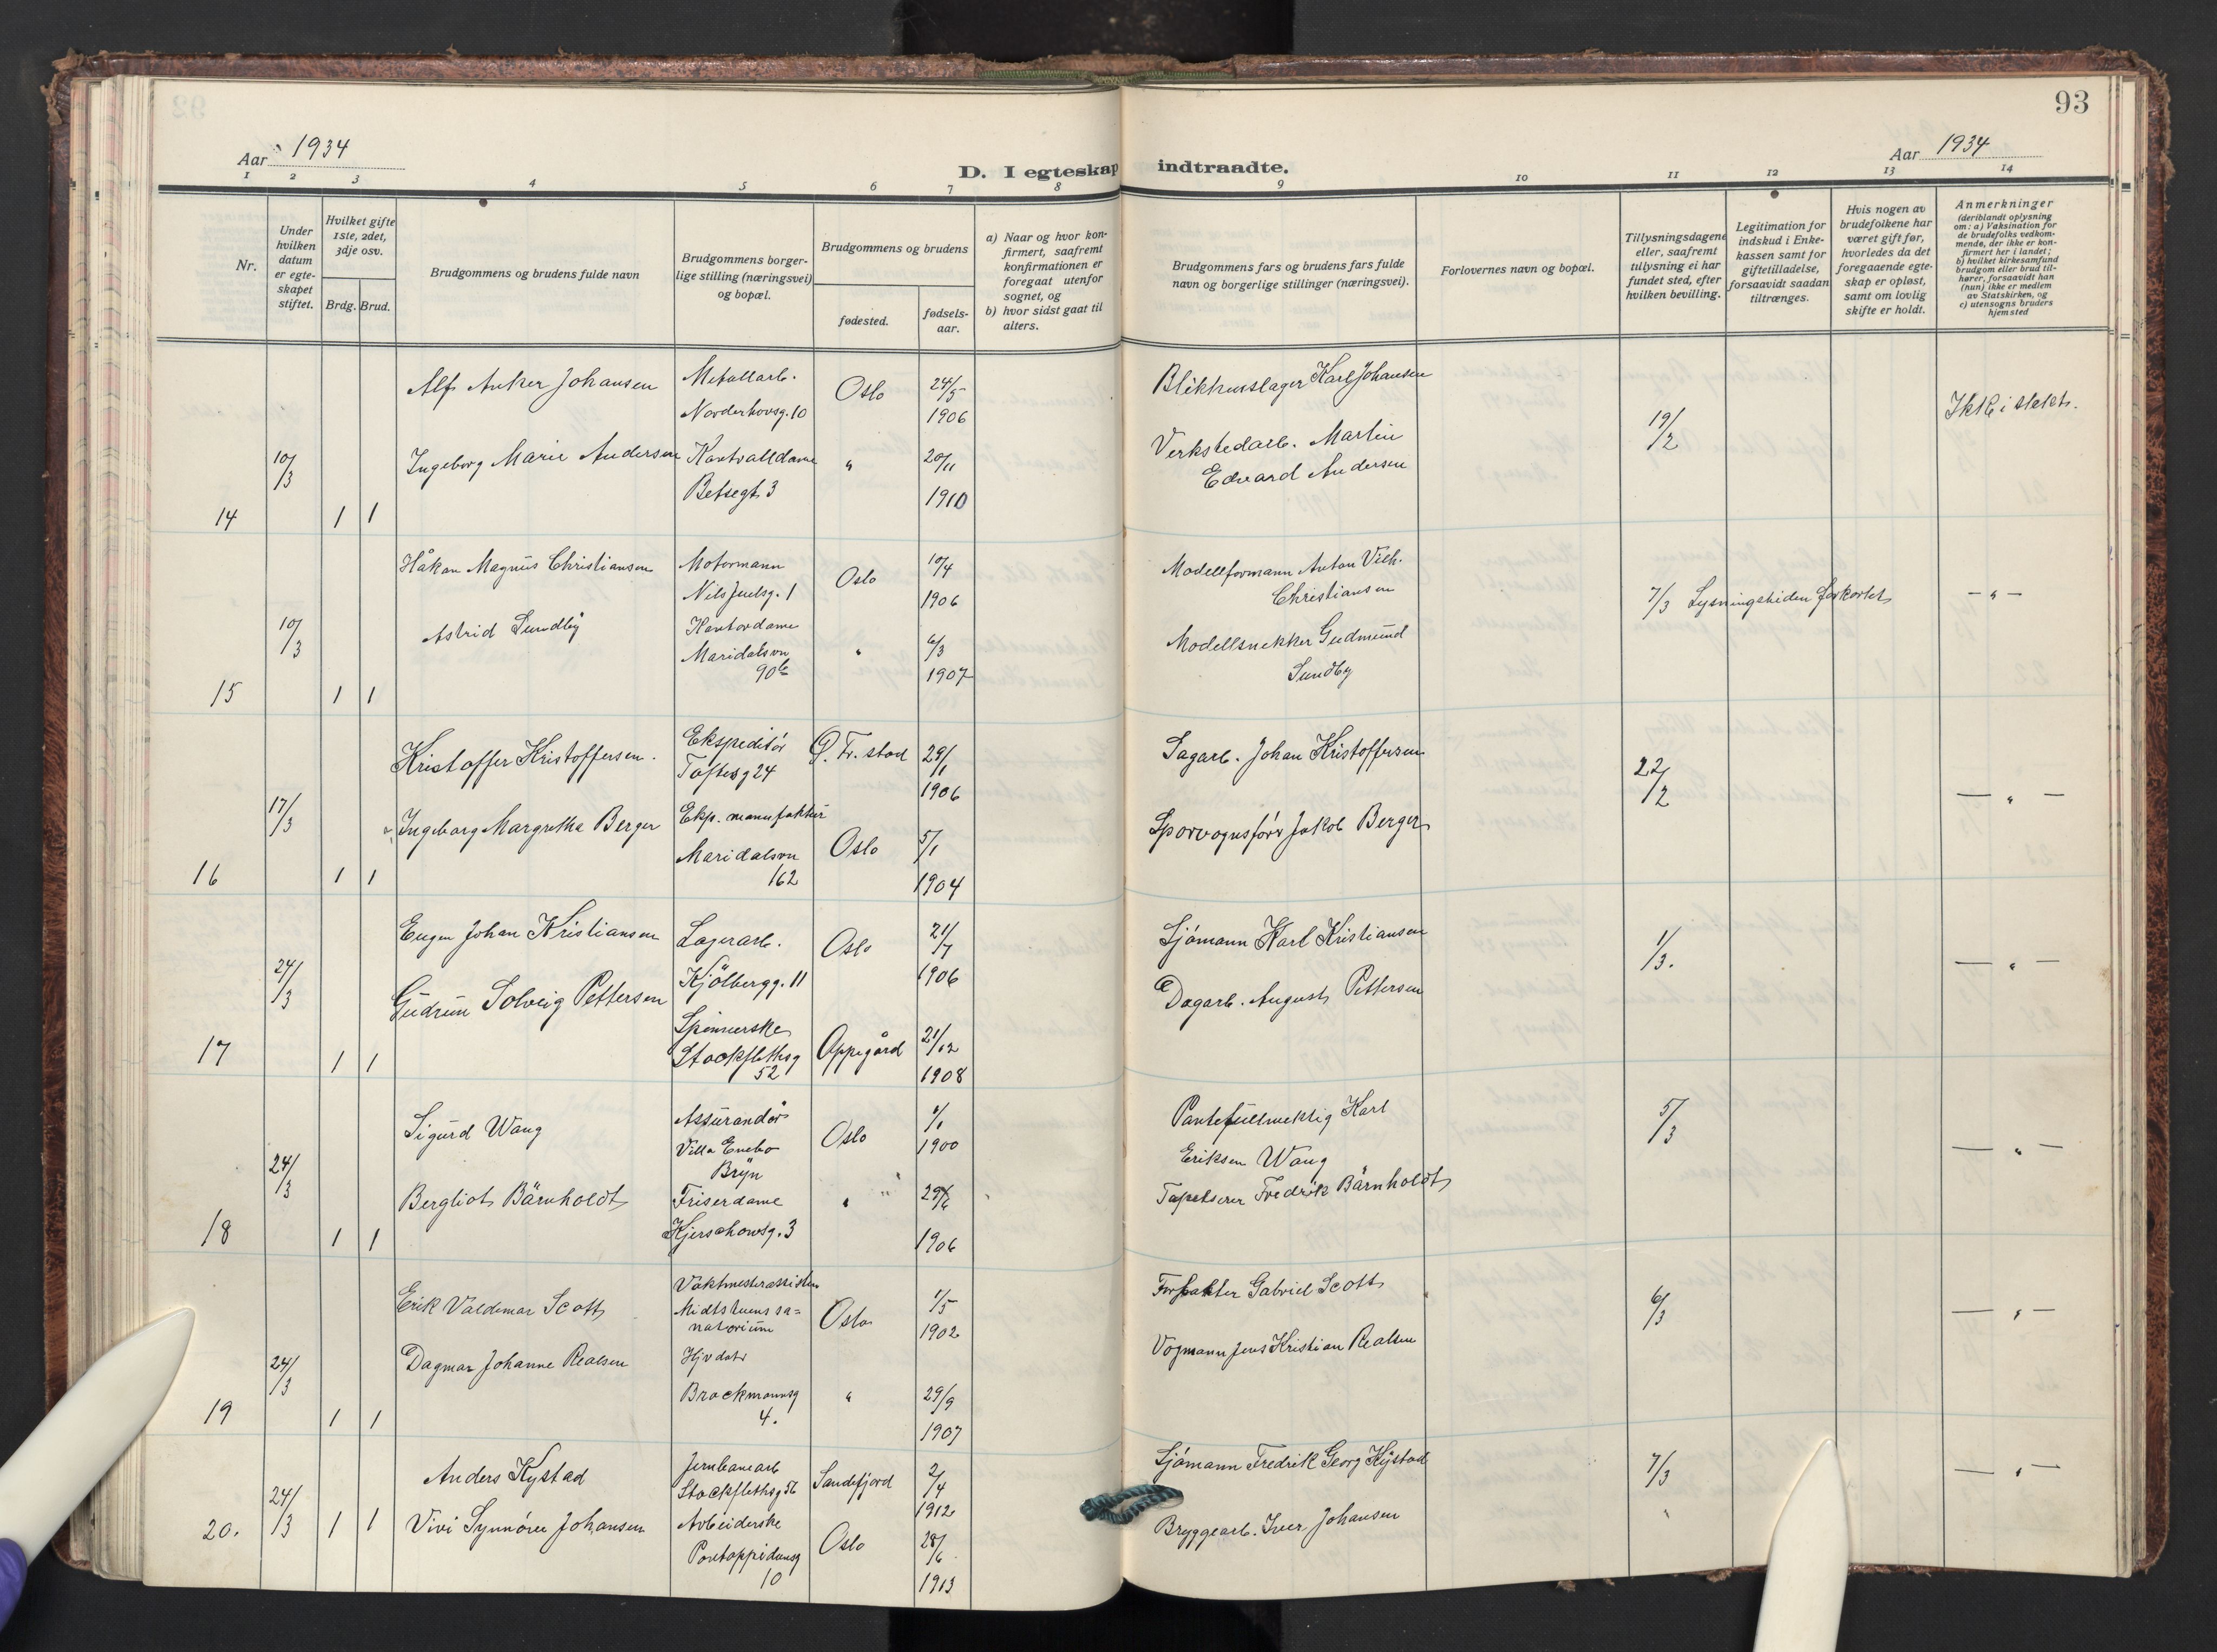 93
Aar 1934
D. I egteskap indtraadte.
Aar 1934
1 2 3 4 5 6 7 8 9 10 11 12 13 14
Nr.
Under
hvilken
datum
er egte-
skapet
stiftet.
Hvilket gifte
1ste, 2det,
3dje osv.
Brdg. Brud.
Brudgommens og brudens fulde navn
Brudgommens borger-
lige stilling (næringsvei)
og bopæl.
Brudgommens og brudens
fødested.
fødsels-
aar.
a) Naar og hvor kon-
firmert, saafremt
konfirmationen er
foregaat utenfor
sognet, og
b) hvor sidst gaat til
alters.
Brudgommens fars og brudens fars fulde
navn og borgerlige stillinger (næringsvei).
Forlovernes navn og bopæl.
Tillysningsdagene
eller, saafremt
tillysning ei har
fundet sted, efter
hvilken bevilling.
Legitimation for
indskud i Enke-
kassen samt for
giftetilladelse,
forsaavidt saadan
tiltrænges.
Hvis nogen av
brudefolkene har
været gift før,
hvorledes da det
foregaaende egte-
skap er opløst,
samt om lovlig
skifte er holdt.
Anmerkninger
(deriblandt oplysning
om: a) Vaksination for
de brudefolks vedkom-
mende, der ikke er kon-
firmert her i landet;
b) hvilket kirkesamfund
brudgom eller brud til-
hører, forsaavidt han
(hun) ikke er medlem
av Statskirken, og
c) utensogns bruders
hjemsted
14
10/3
1 1
Alf Anker Johansen
Metallarb.
Norderhovsg. 10
Oslo
24/5
1906
Blikkenslager Karl Johansen
19/2
Ikke i slekt.
Ingeborg Marie Andersen
Kontrolldame
Betzegt 3
"
20/11
1910
Verkstedarb. Martin
Edvard Andersen
15
10/3
1 1
Håkon Magnus Christiansen
Motormann
Nils Juelsg. 1
Oslo
10/4
1906
Modellformann Anton Vilh.
Christiansen
7/3 Lysningstiden forkortet
— " —
Astrid Sundby
Kontordame
Maridalsvn
90b
"
6/3
1907
Modellsnekker Gudmund
Sundby
16
17/3
1 1
Kristoffer Kristoffersen.
Ekspeditør
Toftesg 24
G. Fr. stad
29/1
1906
Sagarb. Johan Kristoffersen
22/2
— " —
Ingeborg Margrethe Berger
Eksp. manufaktur
Maridalsvn
162
Oslo
5/1
1904
Sporvognsförer Jakob Berger
17
24/3
1 1
Eugen Johan Kristiansen
Lagerarb.
Kjölbergg. 11
Oslo
21/7
1906
Sjömann Karl Kristiansen
1/3.
— " —
Gudrun Solveig Pettersen
Spinnerske
Stockflethsg
52
Oppegård
21/12
1908
Dagarb. August Pettersen
18
24/3
1 1
Sigurd Wang
Assurandör
Villa Enebo
Bryn
Oslo
1900
Pantefullmektig Karl
Eriksen Wang
5/3
— " —
Bergliot Bärnholdt
Friserdame
Kjerschowsg. 3
"
29/6
1906
Tapetserer Fredrik Bärnholdt
19
24/3
1 1
Erik Valdemar Scott
Vaktmesterassistent
Midtstuens sa=
natorium
Oslo
1/5
1902
Forfatter Gabriel Scott
6/3
— " —
Dagmar Johanne Realsen
Hjv datr
Brockmannsg
4.
"
29/9
1907
Vognmann Jens Kristian Realsen
20.
24/3
1 1
Anders Kystad
Jernbanearb
Stockflethsg 56
Sandefjord
2/4
1912
Sjömann Fredrik Georg Kystad
7/3
— " —
Vivi Synnöve Johansen
Arbeiderske
Pontoppidansg
10
Oslo
28/6
1913
Bryggearb. Iver Johansen
"